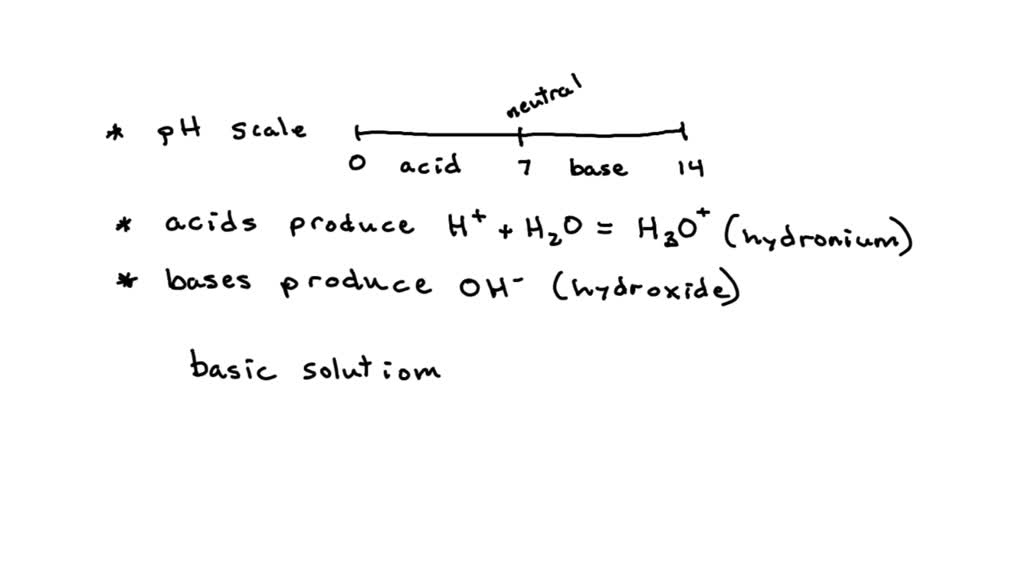 neutral
* pH scale
0 acid 7 base 14
* acids produce H⁺ + H₂O = H₃O⁺ (hydronium)
* bases produce OH⁻ (hydroxide)
basic solutiom